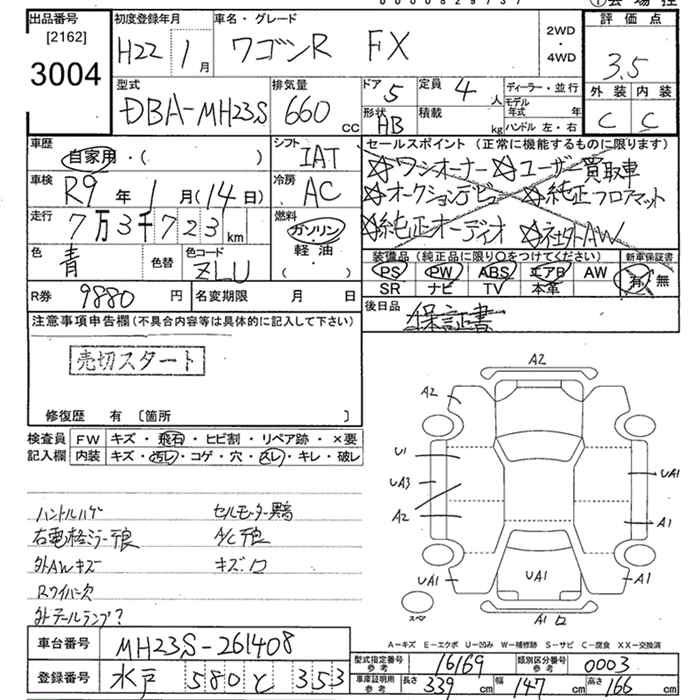 出品番号 [2162] 3004
初度登録年月 H22 1月
車名・グレード ワゴンR FX
2WD・4WD
評価点 3.5
外装 C 内装 C
型式 DBA-MH23S
排気量 660cc
ドア 5
形状 HB
定員 4人
積載 kg
ディーラー・並行
モデル年式 年
ハンドル 左・右
車歴 自家用・( )
シフト IAT
車検 R9年 1月(14日)
冷房 AC
走行 7万3千723km
燃料 ガソリン・軽油・( )
色 青 色替
色コード ZLU
R券 9880円
名変期限 月 日
セールスポイント (正常に機能するものに限ります)
☆ワンオーナー ☆ユーザー買取車
☆オークションデビュー ☆純正フロアマット
☆純正オーディオ ☆社外AW
装備品 (純正品に限り○をつけてください) 新車保証書
PS PW ABS エアB AW 有・無
SR ナビ TV 本革
後日品 保証書
注意事項申告欄 (不具合内容等は具体的に記入して下さい)
売切スタート
修復歴 有 〔箇所 〕
検査員記入欄
FW キズ・飛石・ヒビ割・リペア跡・×要
内装 キズ・汚レ・コゲ・穴・スレ・キレ・破レ
ハンドルハゲ セルモーター異音
右電格ミラー不良 A/C不良
外AWキズ キズ ロ
Rワイパー欠
外テールランプ?
A2
A2
U1 UA1
UA3
A2 A1
UA1 UA1 A1
スペ A1 ロ
A=キズ E=エクボ U=凹み W=補修跡 S=サビ C=腐食 XX=交換済
車台番号 MH23S-261408
登録番号 水戸 580 と 353
型式指定番号 参考 16169
類別区分番号 参考 0003
車庫証明用 参考 長さ 339cm 幅 147cm 高さ 166cm